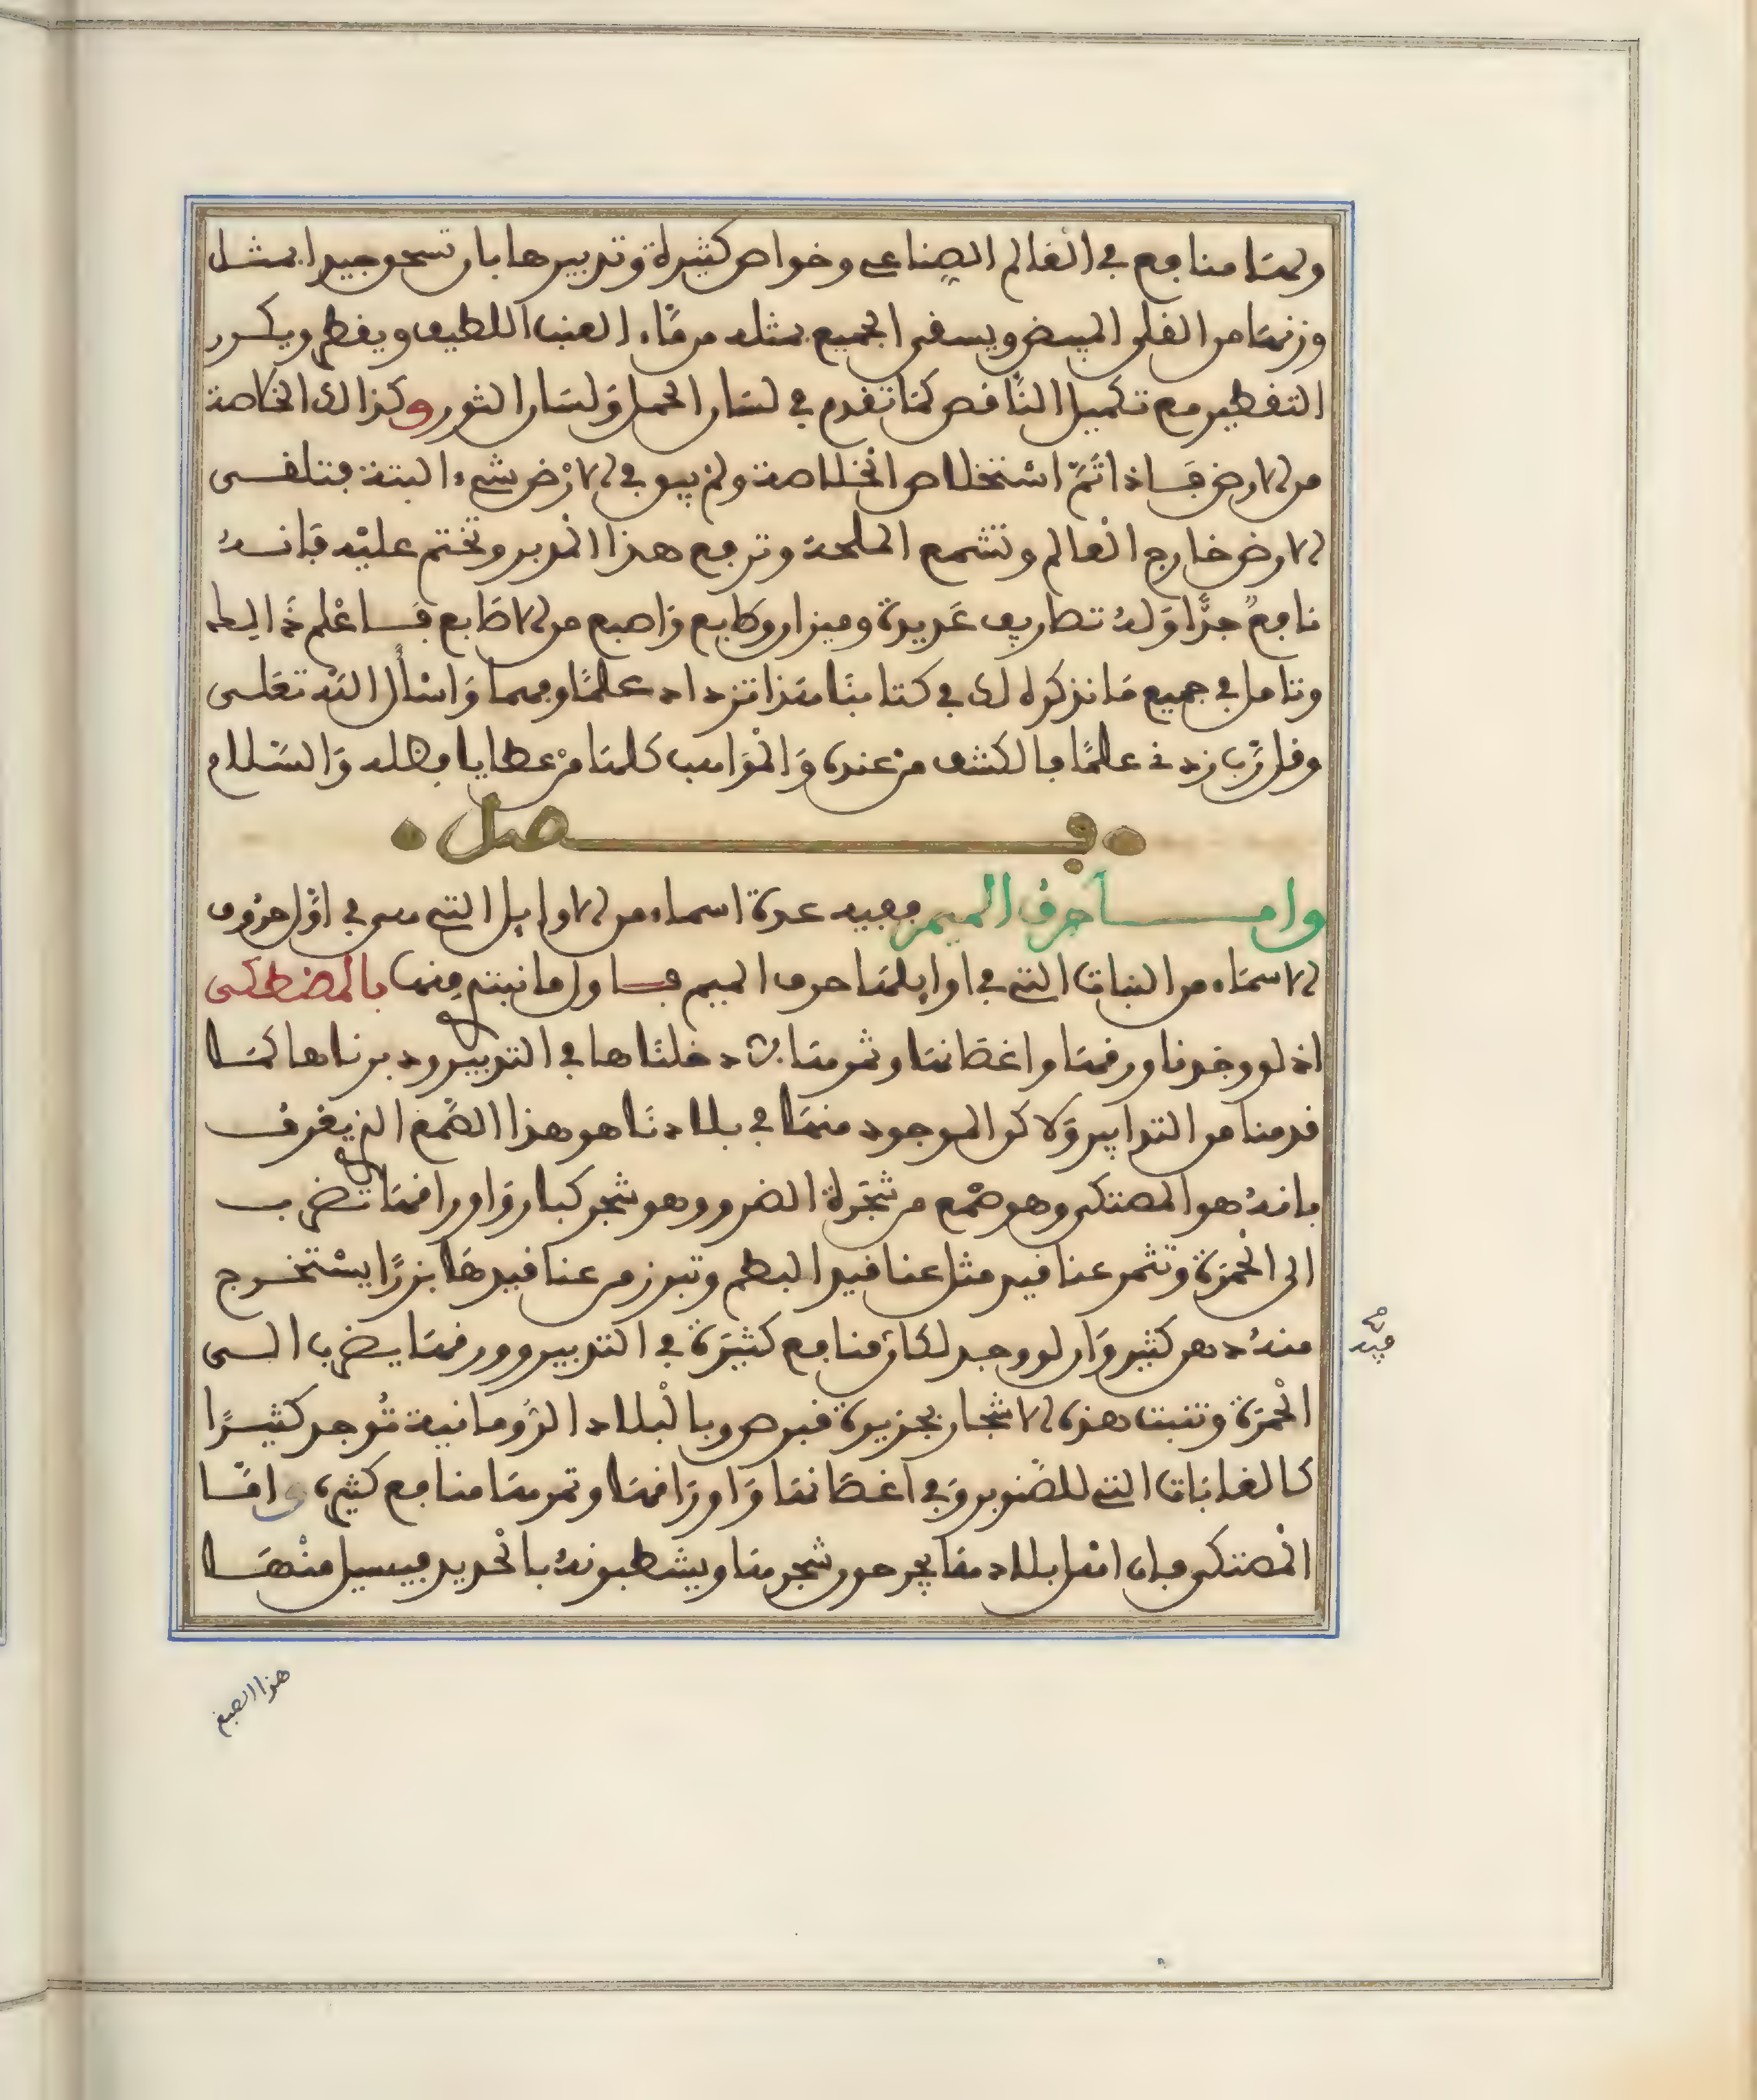 ولها منافع في العالم الصناعي وخواص كثيرة وتدبيرها بان تسحق جيدا بمثل
وزنها من القلي المبيض ويسقى الجميع بمثله من ماء العنب اللطيف ويقطر ويكرر
التقطير مع تكميل الناقص كما تقدم في لسان الحمل ولسان الثور وكذالك الخلاصة
من الارض فاذا تم استخلاص الخلاصة ولم يبق في الارض شيء البتة فتلقى
الارض خارج العالم وتشمع الملحة وترفع هذا المدبر وتختم عليه فانه
نافع جدا وله تصاريف عديدة وميزان وطابع واصبع من الاصابع فاعلم ذالك
وتامل في جميع ما نذكره لك في كتابنا هذا تزداد علما وفهما واسأل الله تعلى
وقل رب زدني علما فالكشف من عنده والمواهب كلها من عطايا فضله والسلام
فصل
واما حرف الميم ففيه عدة اسماء من الاوايل التي هي في اول حروف
الاسماء من النبات التي في اوايلها حرف الميم فاول ما نبتدي منها بالمصطكى
اذ لو وجدنا ورقها واغصانها وثمرها لادخلناها في التدبير ودبرناها كما
قدمنا من التدابير ولاكن الموجود منها في بلادنا هو هذا الصمغ الذي يعرف
بانه هو المصتكى وهو صمغ من شجرة الضرو وهو شجر كبار واوراقها تضرب
الى الحمرة وتثمر عناقيد مثل عناقيد البطم وتبرز من عناقيدها بزرا يستخرج
منه دهن كثير وان لو وجد لكان منافع كثيرة في التدبير وورقها يضرب الى
فيه
الحمرة وتنبت هذه الاشجار بجزيرة قبرص وبالبلاد الرومانية توجد كثيرا
كالغابات التي للصنوبر وفي اغصانها واوراقها وثمرها منافع كثيرة واما
المصتكى فان اهل بلادها يجرحون شجرها ويشطبونه بالحديد فيسيل منها
هذا الصمغ